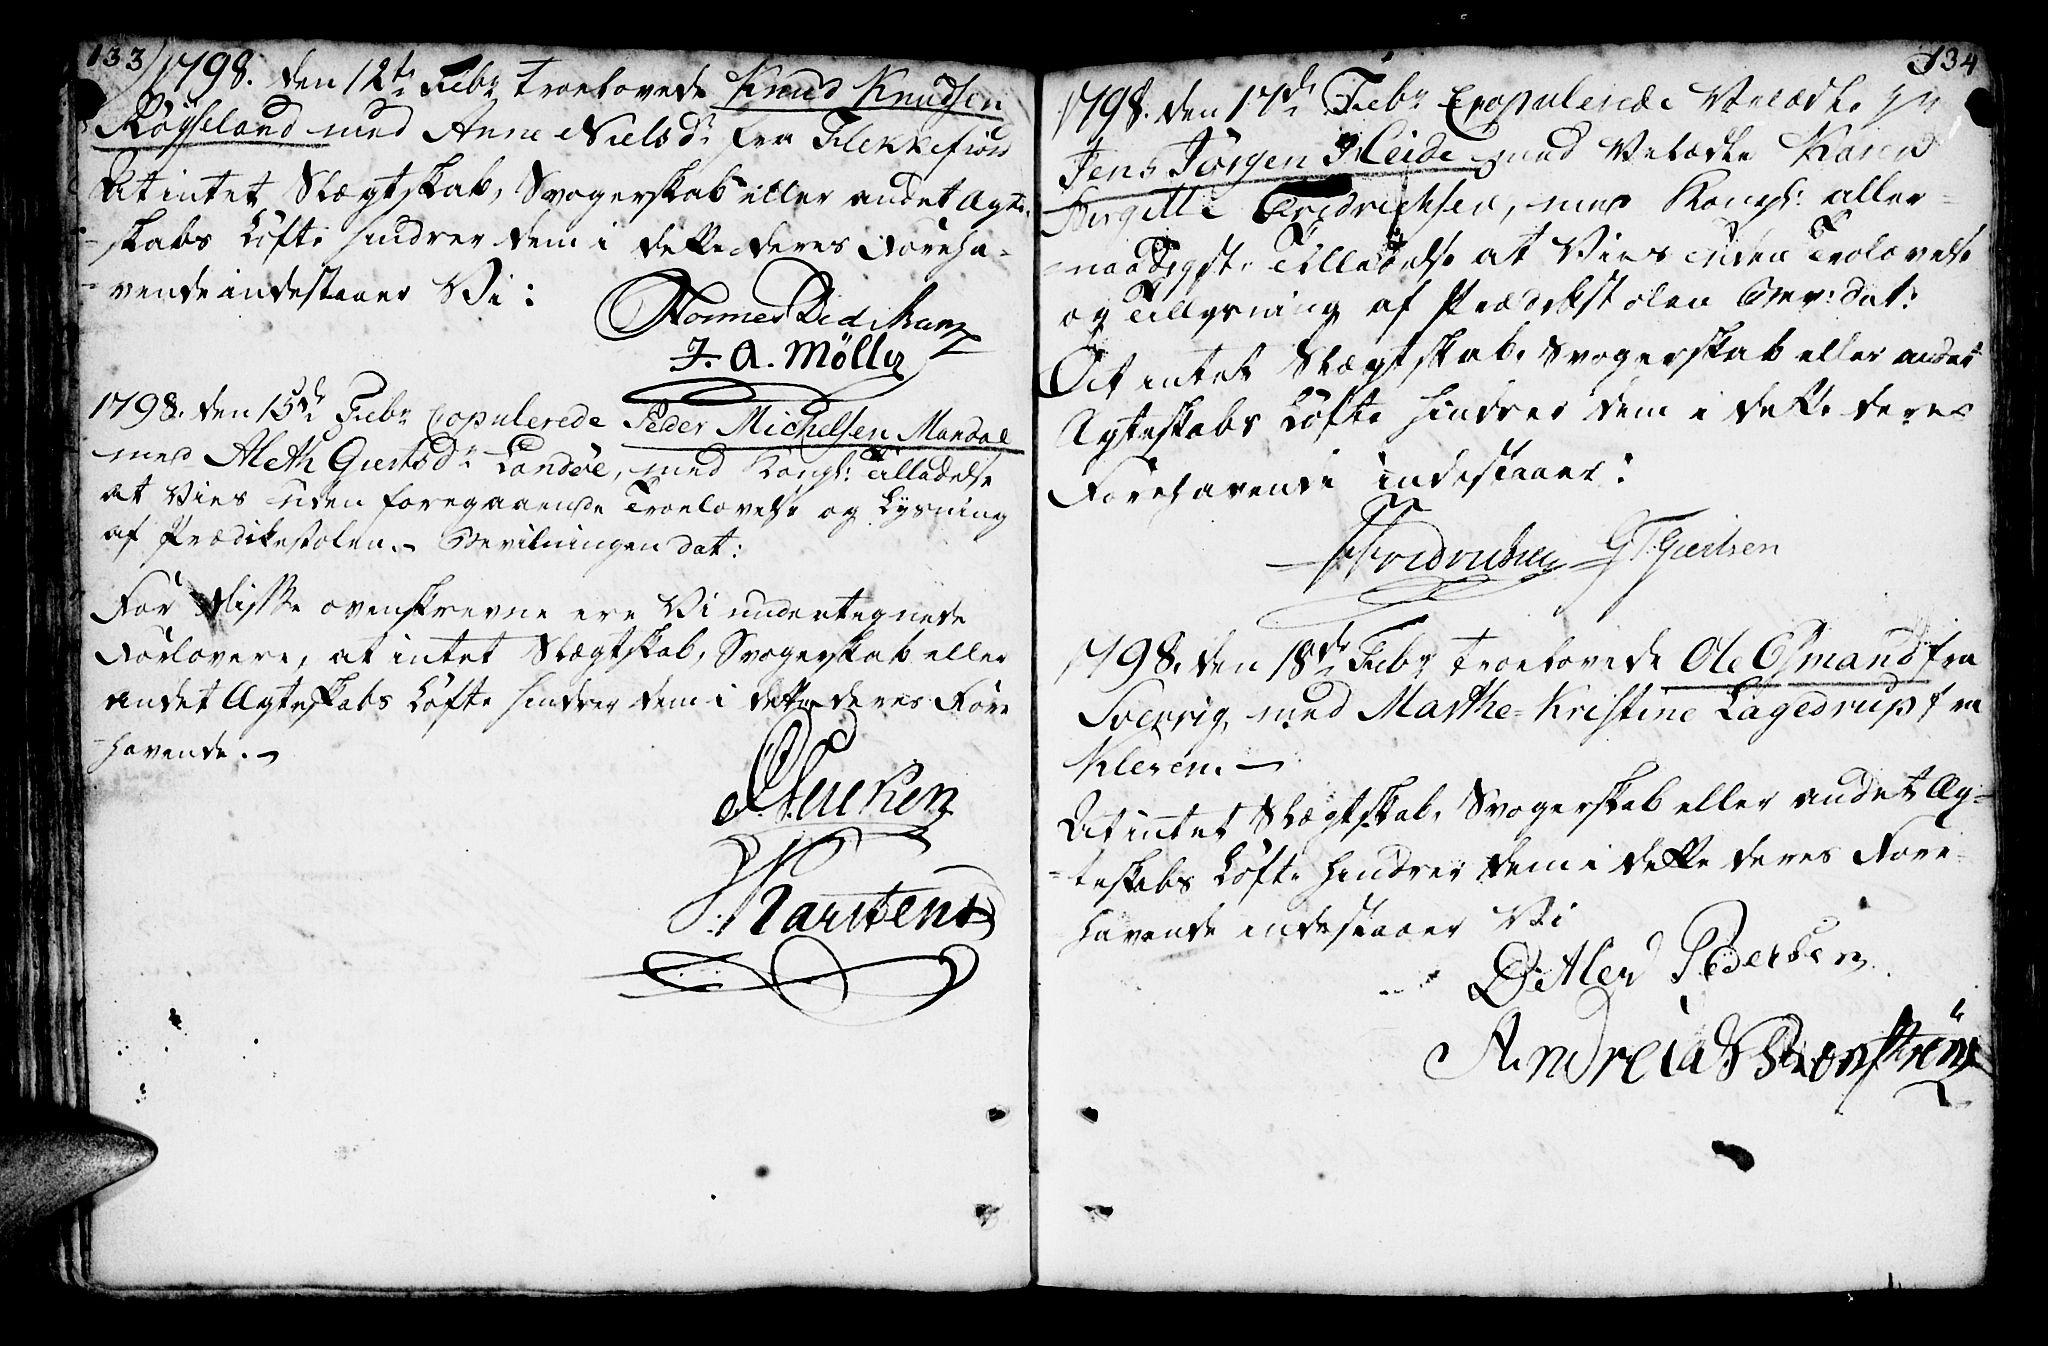 133/1798. den 12te Febr troelovede Knud Knudsen
Røyseland med Anne Nielsdr fra Flekkefiord
At intet Slægtskab, Svogerskab eller andet Ægte-
-skabs Løfte hindrer dem i dette deres Foreha-
-vende indestaaer Vi:
Hannes Didr
J. A. Möller
1798. den 15de Febr Copulerede Peder Michelsen Mandal
med Aleth Giertsdr Landøe, med Kongl: Tilladelse
at Vies uden foregaaende Troelovelse og Lysning
af Prædikestolen. - Bevilningen dat:
For disse ovenskrevne ere Vi undertegnede
Forlovere, at intet Slægtskab, Svogerskab eller
andet Ægteskabs Løfte hindrer dem i dette deres Fore
-havende. -
134
1798. den 17de Febr Copulerede Velædle Hr
Jens Jørgen Heide med Velædle Karen
Birgitte Fredrichsen, med Kongl: aller-
-naadigste Tilladelse at Vies uden Trolovelse
og Tillysning af Prædikestolen Bev: dat:
At intet Slægtskab, Svogerskab eller andet
Ægteskabs Løfte hindrer dem i dette deres
Forehavende indestaaer:
Fredrichsen G T Giertsen
1798. den 18de Febr troelovede Ole Osmand fra
Sverrig, med Marthe Kristine Lagedrup fra
Kleven. -
At intet Slægtskab, Svogerskab eller andet Æg-
-teskabs Løfte hindrer dem i dette deres Fore-
havende indestaaer Vi
Ditlev Pedersen
Andreas